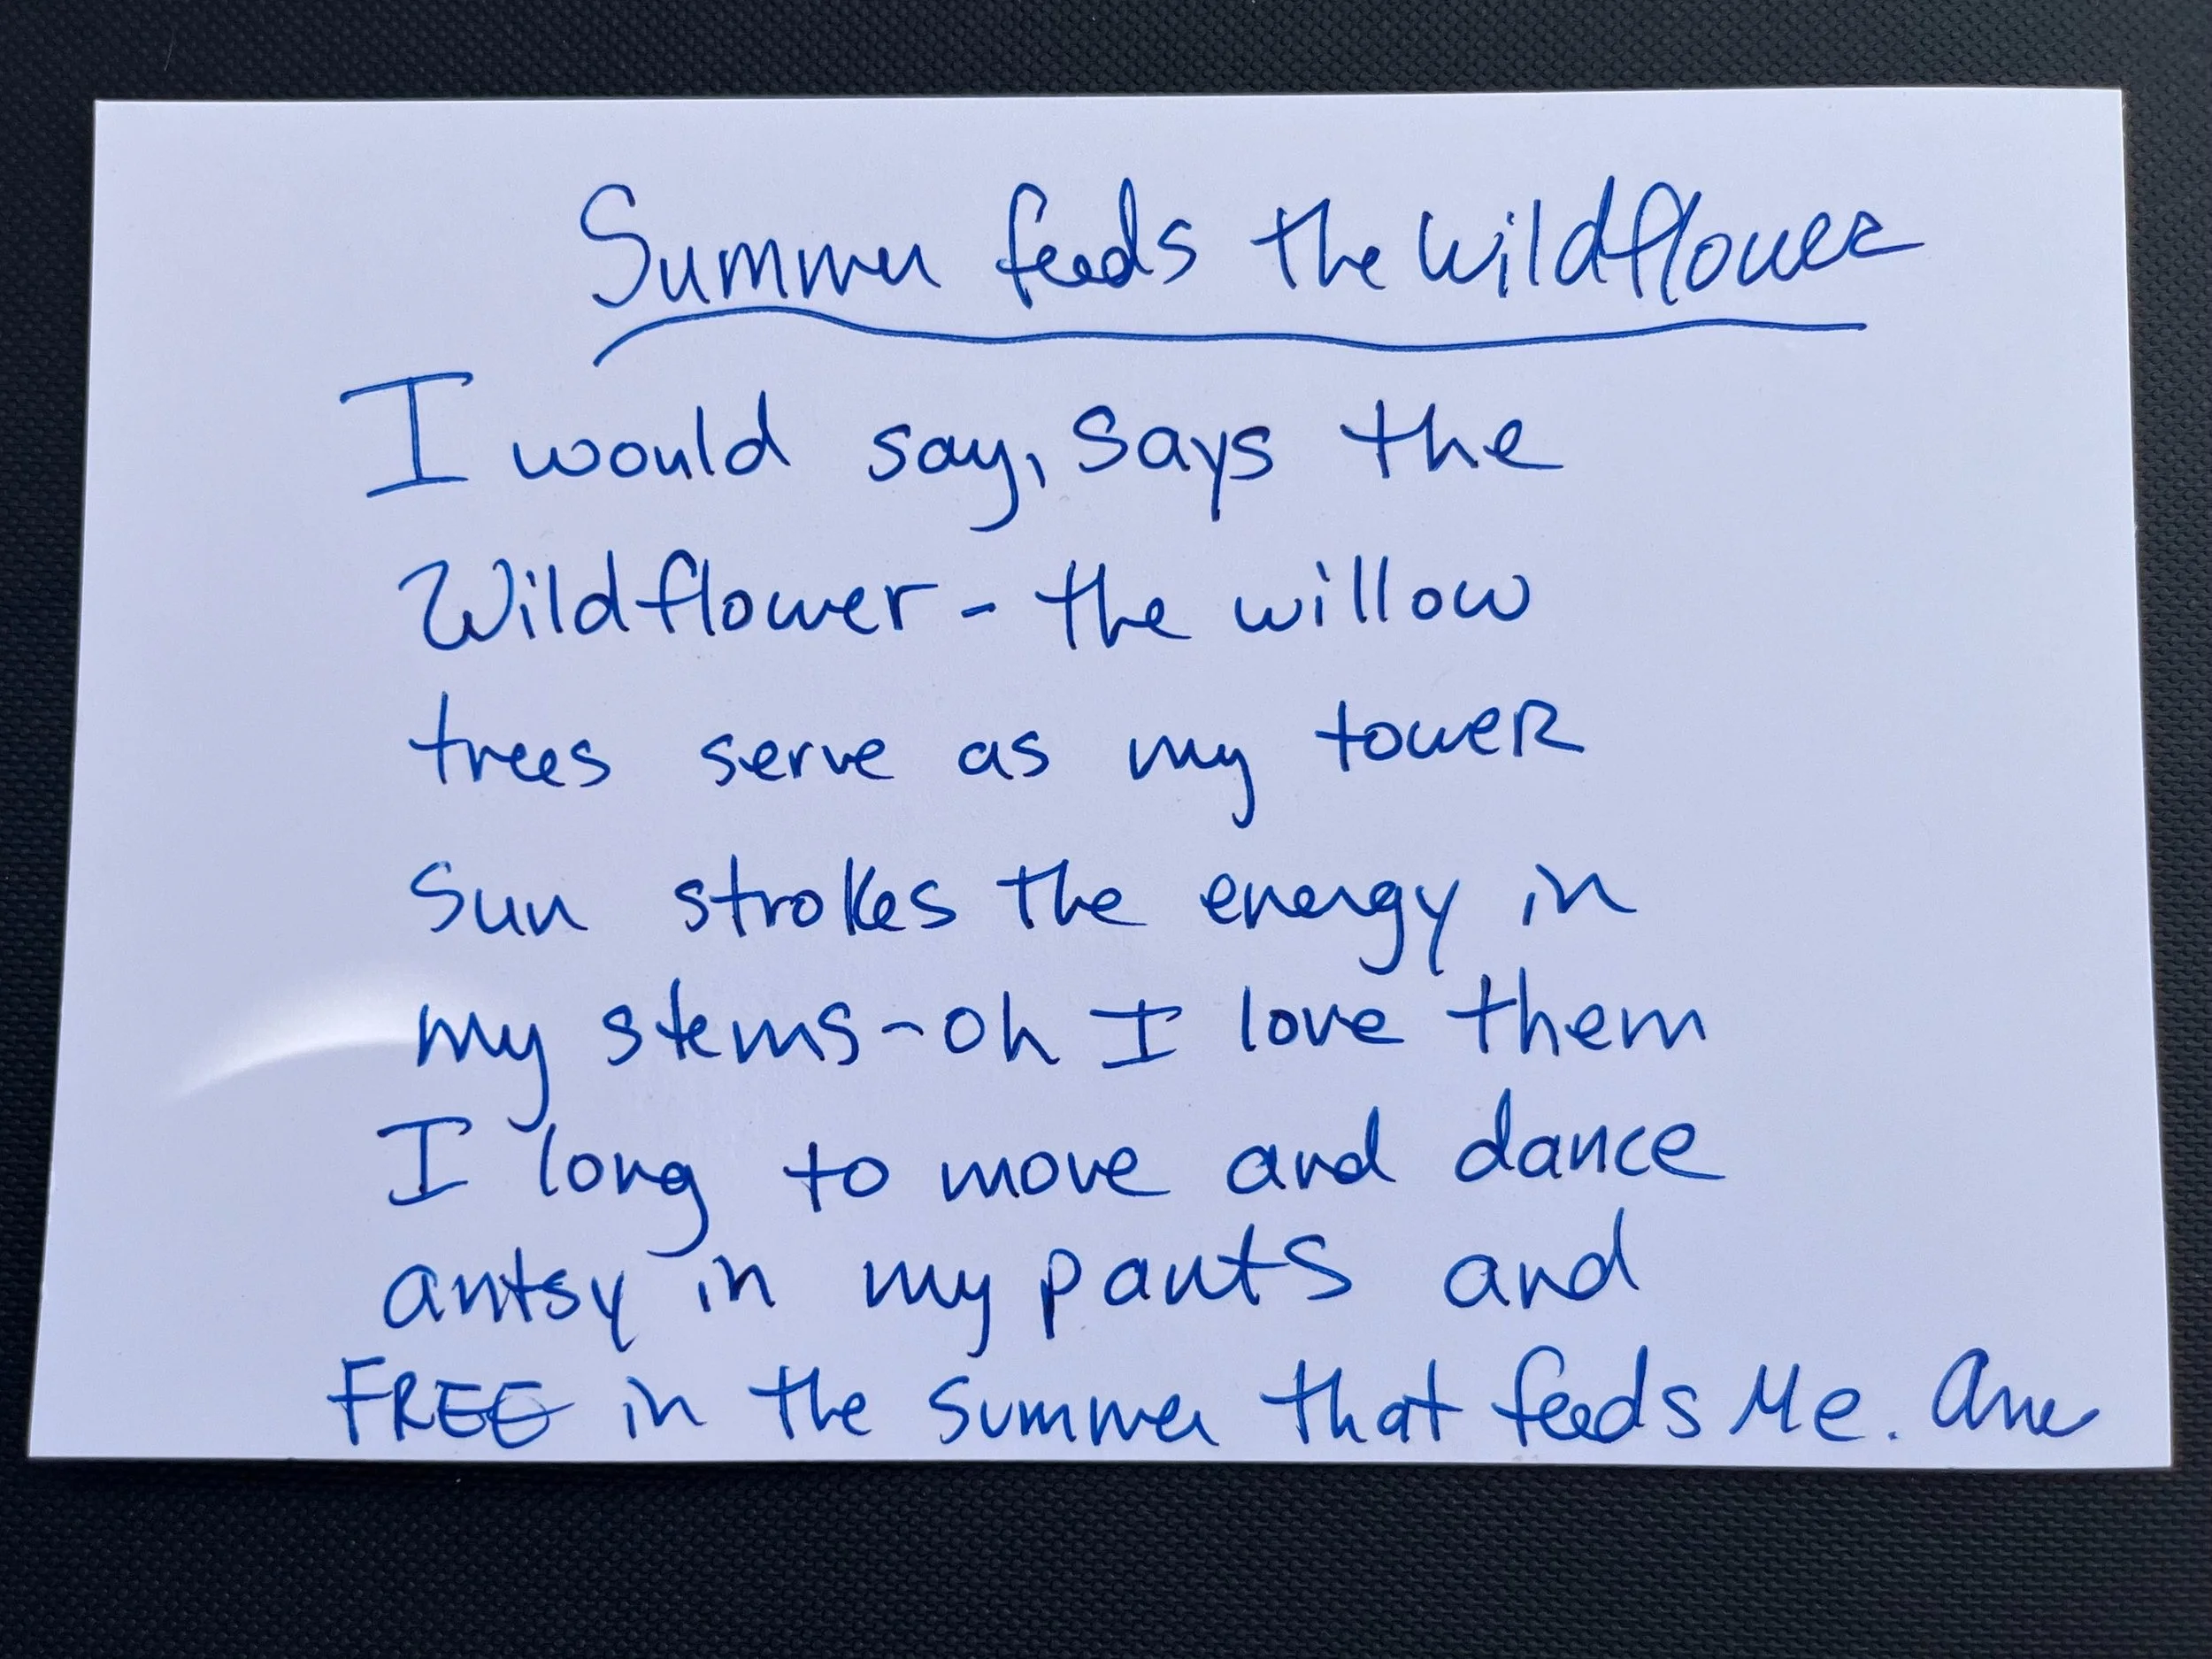 Summer feeds the Wildflower
I would say, says the
Wildflower - the willow
trees serve as my toweR
Sun strokes the energy in
my stems - oh I love them
I long to move and dance
antsy in my pants and
FREE in the summer that feeds Me.